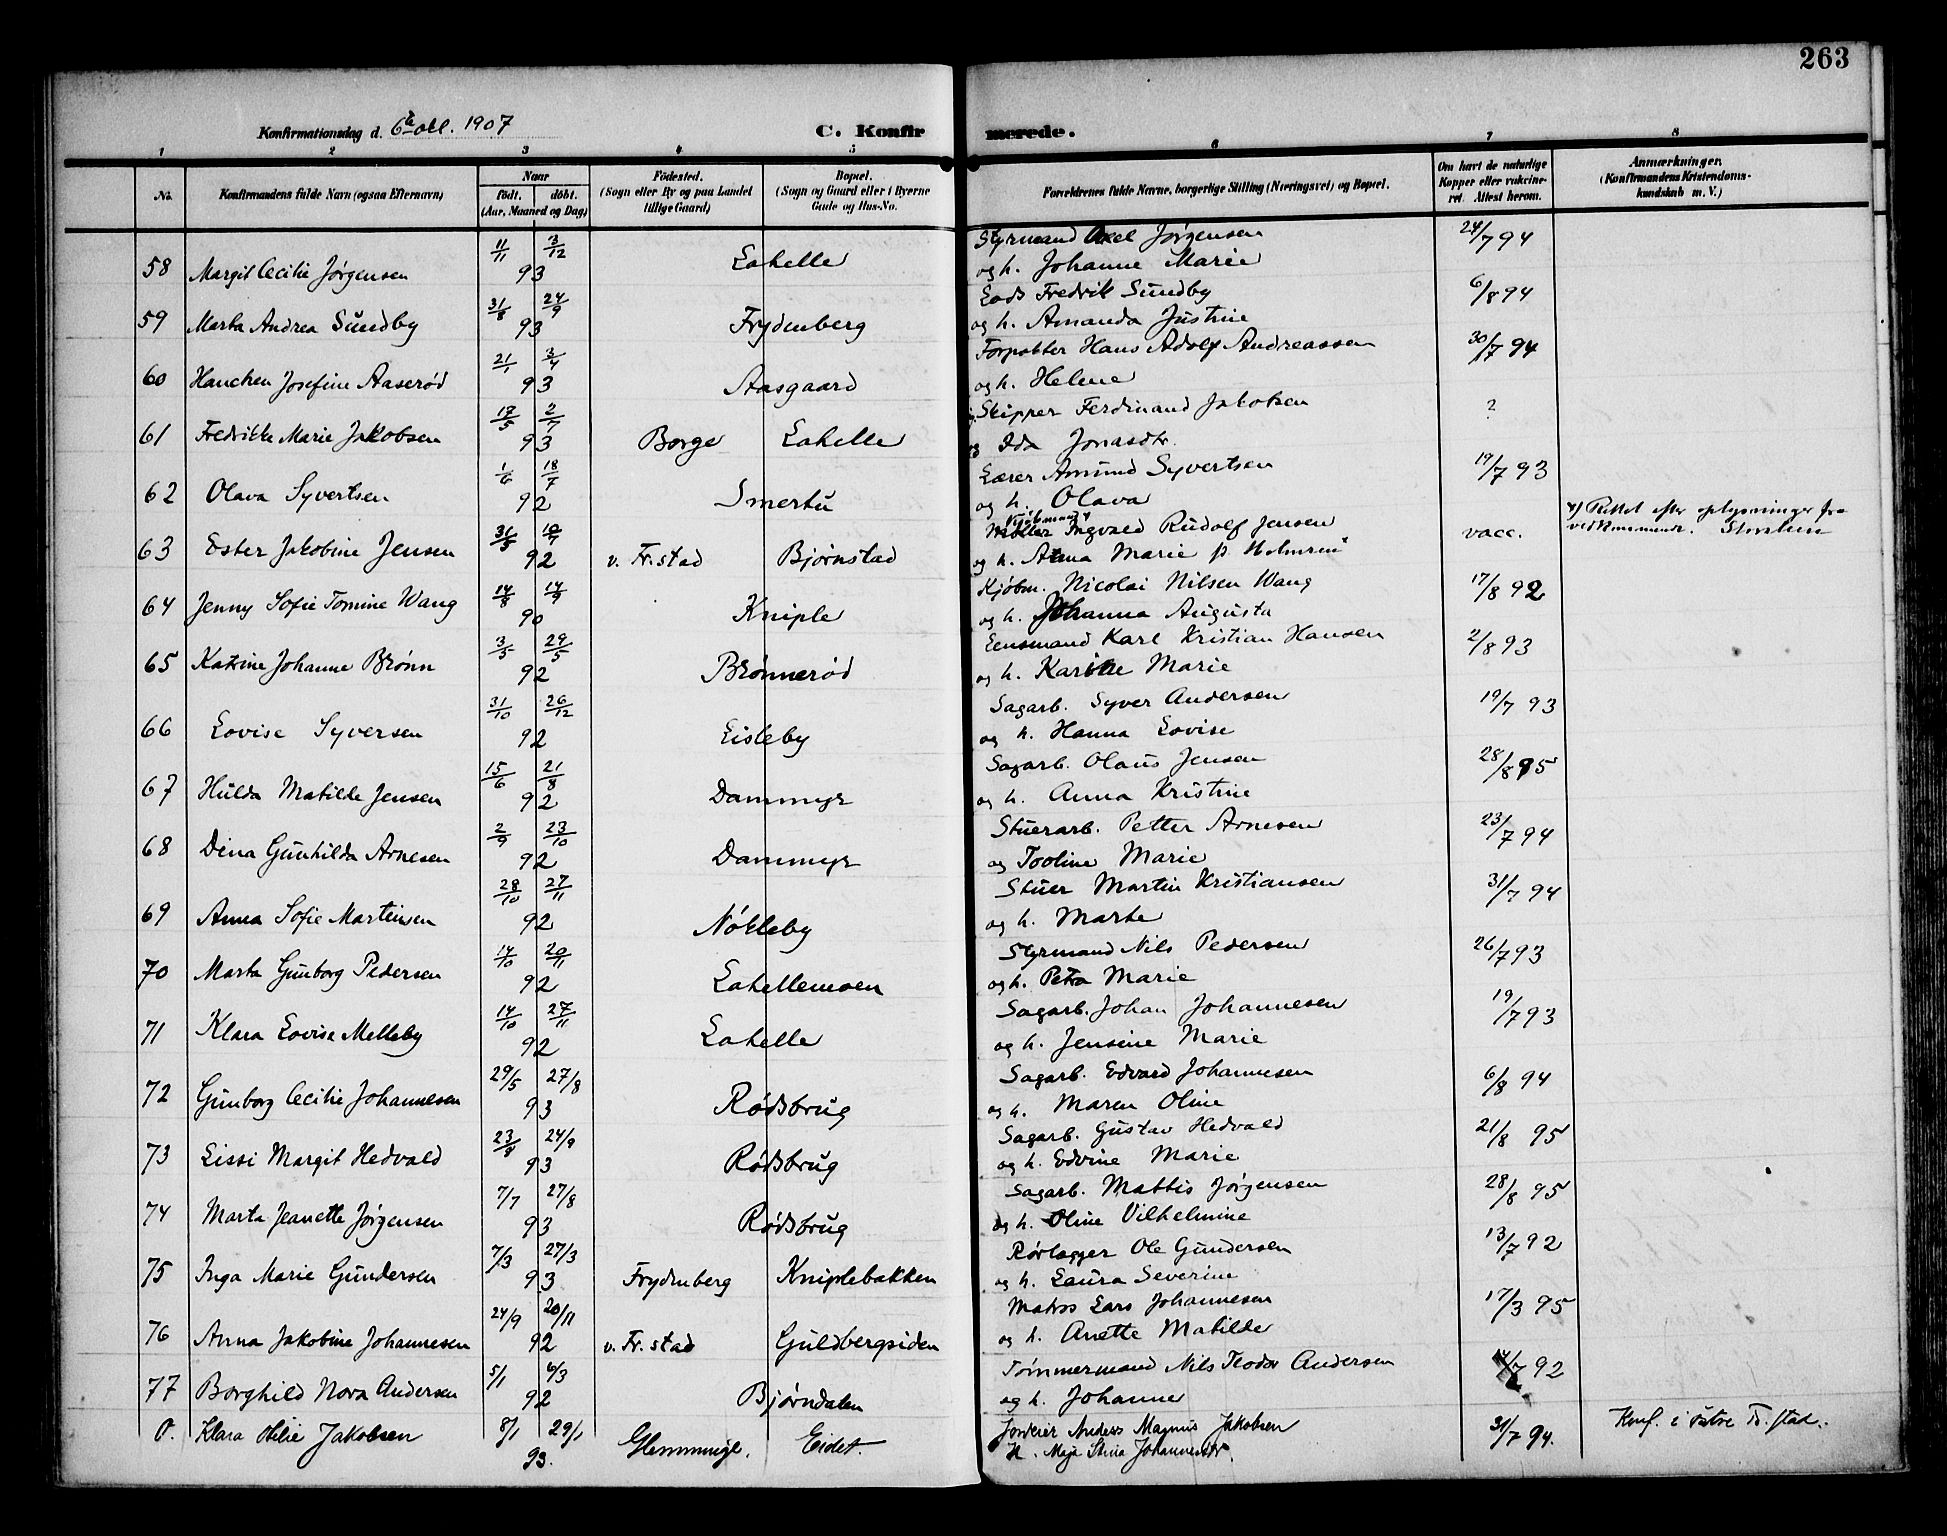 263
Konfirmationsdag d. 6te okt. 1907 C. Konfirmerede.
1 2 3 4 5 6 7 8
No. Konfirmandens fulde Navn (ogsaa Efternavn) Naar født. døbt. (Aar, Maaned og Dag) Fødested. (Sogn eller By og paa Landet tillige Gaard) Bopæl. (Sogn og Gaard eller i Byerne Gade og Hus-No. Forældrenes fulde Navne, borgerlige Stilling (Næringsvei) og Bopæl. Om havt de naturlige Kopper eller vakcineret. Attest herom. Anmærkninger. (Konfirmandens Kristendomskundskab m. V.)
58 Margit Cecilie Jørgensen 11/11 3/12 93 Lahelle Styrmand Axel Jörgensen 24/7 94
og h. Johanne Marie
59 Marta Andrea Sundby 31/8 24/9 93 Frydenberg Lods Fredrik Sundby 6/8 94
og h. Amanda Justine
60 Hanchen Josefine Aaserød 21/1 3/4 93 Aasgaard Forpakter Hans Adolf Andreassen 30/7 94
og h. Helene
61 Fredrikke Marie Jakobsen 17/5 2/7 93 Borge Lahelle Skipper Ferdinand Jakobsen ?
og Ida Jonasdtr.
62 Olava Syvertsen 1/6 18/7 92 Smertu Lærer Amund Syvertsen 19/7 93
og h. Olava
63 Ester Jakobine Jensen 31/5 92 v. Fr.stad Bjørnstad Ingvald Rudolf Jensen vacc. *) Rettet efter oplysninger fra vedkommende.
og h. Anna Marie f. Holmsen
64 Jenny Sofie Tomine Wang 14/8 14/9 90 Kniple Kjøbm. Nicolai Nilsen Wang 17/8 92
og h. Johanna Augusta
65 Katrine Johanne Brønn 3/3 29/5 92 Brønnerød Eensmand Karl Kristian Hansen 2/8 93
og h. Karine Marie
66 Lovise Syversen 31/10 26/12 92 Lisleby Sagarb. Syver Andersen 19/7 93
og h. Hanna Lovise
67 Hulda Matilde Jensen 15/6 21/8 92 Dammyr Sagarb. Olaus Jensen 28/8 95
og h. Anna Kristine
68 Dina Gunhilda Arnesen 2/9 23/10 92 Dammyr Stuerarb. Petter Arnesen 23/7 94
og Tooline Marie
69 Anna Sofie Martinsen 28/10 27/11 92 Nøkleby Stuer Martin Kristiansen 31/7 94
og h. Marte
70 Marta Gunborg Pedersen 14/10 20/11 92 Lahellemoen Styrmand Nils Pedersen 26/7 93
og h. Petra Marie
71 Klara Lovise Melleby 14/10 27/11 92 Lahelle Sagarb. Johan Johannesen 19/7 93
og h. Jensine Marie
72 Gunborg Cecilie Johannesen 29/5 27/8 93 Rødsbrug Sagarb. Edvard Johannesen 6/8 94
og h. Maren Oline
73 Lissi Margit Hedvald 23/8 24/9 93 Rødsbrug Sagarb. Gustav Hedvald 21/8 95
og h. Edvine Marie
74 Marta Jeanette Jørgensen 7/7 27/8 93 Rødsbrug Sagarb. Mattis Jørgensen 28/8 95
og h. Oline Vilhelmine
75 Inga Marie Gundersen 7/3 27/3 93 Frydenberg Kniplebakken Rørlægger Ole Gundersen 13/7 92
og h. Laura Severine
76 Anna Jakobine Johannesen 24/9 20/11 92 v. Fr.stad Guldbergsiden Matros Lars Johannesen 17/3 95
og h. Anette Matilde
77 Borghild Nora Andersen 5/1 6/3 92 Bjørndalen Tømmermand Nils Teodor Andersen /7 92
og h. Johanne
0. Klara Otilie Jakobsen 8/1 29/1 93. Glemminge. Eidet. Jordeier Anders Magnus Jakobsen 31/7 94. Konf. i østre Fr. stad.
H. Maja Stina Johannesdtr.